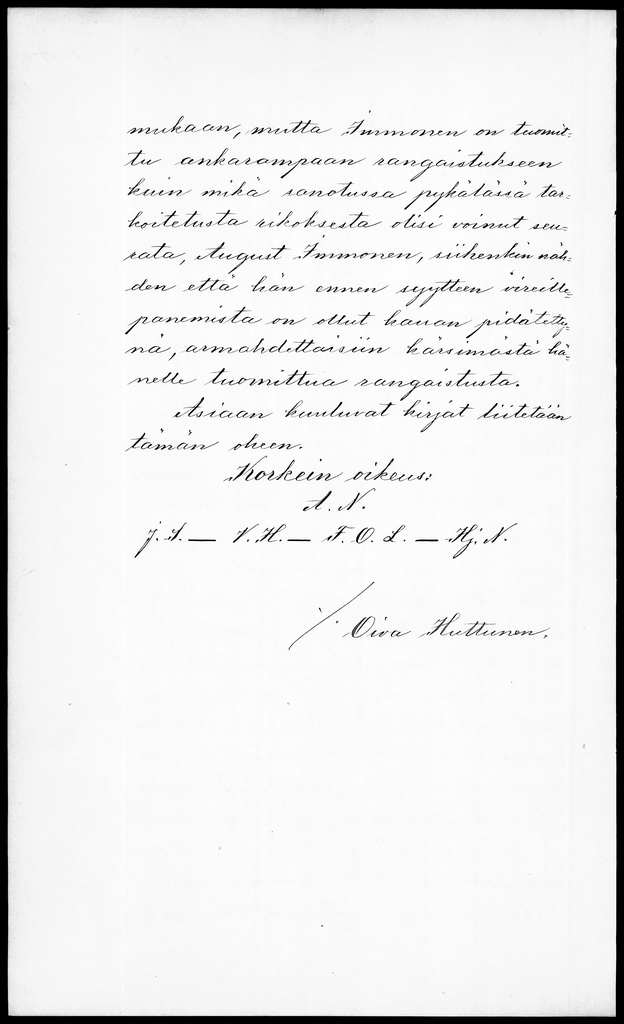 mukaan, mutta Immonen on tuomit=
tu ankarampaan rangaistukseen
kuin mikä sanotussa pykälässä tar=
koitetusta rikoksesta olisi voinut seu=
rata, August Immonen, siihenkin näh=
den että hän ennen syytteen vireille=
panemista on ollut kauan pidätetty=
nä, armahdettaisiin kärsimästä hä=
nelle tuomittua rangaistusta.
Asiaan kuuluvat kirjat liitetään
tämän oheen.
Korkein oikeus:
A. N.
J. S. — V. H. — F. O. L. — Hj. N.
./. Oiva Huttunen.